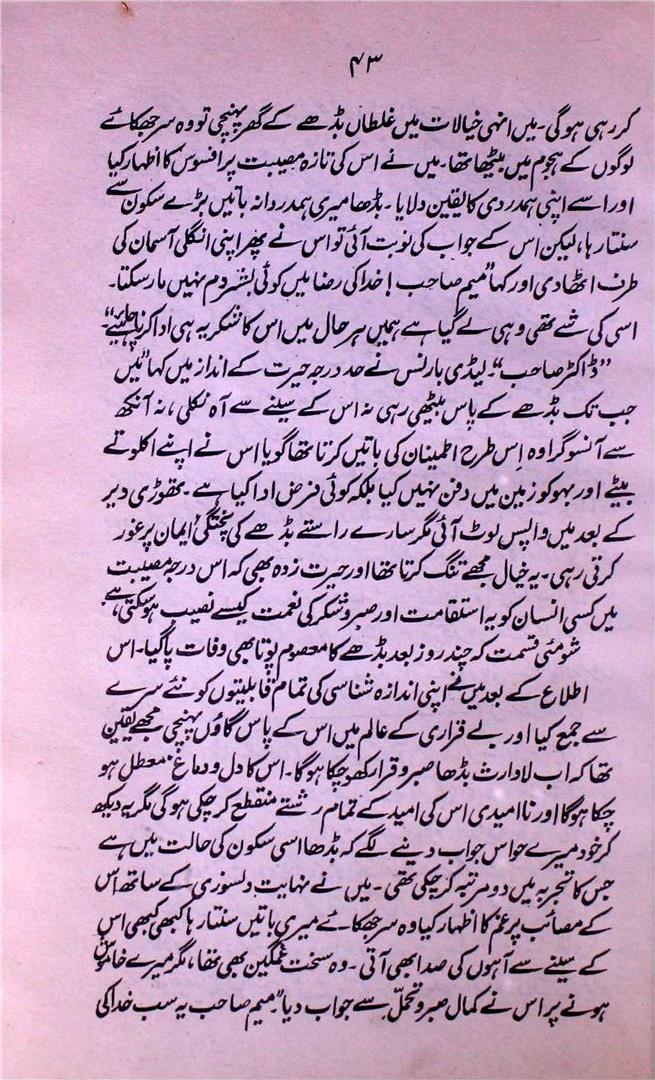 ۴۳
کر رہی ہوگی۔ میں انہی خیالات میں غلطاں بڈھے کے گھر پہنچی تو وہ سر جھکائے
لوگوں کے ہجوم میں بیٹھا تھا۔ میں نے اس کی تازہ مصیبت پر افسوس کا اظہار کیا
اور اسے اپنی ہمدردی کا یقین دلایا۔ بڈھا میری ہمدردانہ باتیں بڑے سکون سے
سنتا رہا، لیکن اس کے جواب کی نوبت آئی تو اس نے پھر اپنی انگلی آسمان کی
طرف اٹھا دی اور کہا "میم صاحب! خدا کی رضا میں کوئی بشر دم نہیں مار سکتا۔
اسی کی شے تھی وہی لے گیا ہے ہمیں ہر حال میں اس کا شکریہ ہی ادا کرنا چاہیے"۔
"ڈاکٹر صاحب"۔ لیڈی بارنس نے حد درجہ حیرت کے انداز میں کہا "میں
جب تک بڈھے کے پاس بیٹھی رہی نہ اس کے سینے سے آہ نکلی، نہ آنکھ
سے آنسو گرا وہ اِس طرح اطمینان کی باتیں کرتا تھا گویا اس نے اپنے اکلوتے
بیٹے اور بہو کو زمین میں دفن نہیں کیا بلکہ کوئی فرض ادا کیا ہے۔ تھوڑی دیر
کے بعد میں واپس لوٹ آئی مگر سارے راستے بڈھے کی پختگیٔ ایمان پر غور
کرتی رہی۔ یہ خیال مجھے تنگ کرتا تھا اور حیرت زدہ بھی کہ اس درجہ مصیبت
میں کسی انسان کو یہ استقامت اور صبر و شکر کی نعمت کیسے نصیب ہو سکتی ہے۔
شومئی قسمت کہ چند روز بعد بڈھے کا معصوم پوتا بھی وفات پا گیا۔ اس
اطلاع کے بعد میں نے اپنی اندازہ شناسی کی تمام قابلیتوں کو نئے سرے
سے جمع کیا اور بے قراری کے عالم میں اس کے پاس گاؤں پہنچی مجھے یقین
تھا کہ اب لاوارث بڈھا صبر و قرار کھو چکا ہوگا۔ اس کا دل و دماغ معطل ہو
چکا ہوگا اور ناامیدی اس کی امید کے تمام رشتے منقطع کر چکی ہوگی مگر یہ دیکھ
کر خود میرے حواس جواب دینے لگے کہ بڈھا اسی سکون کی حالت میں ہے
جس کا تجربہ میں دو مرتبہ کر چکی تھی۔ میں نے نہایت دلسوزی کے ساتھ اس
کے مصائب پر غم کا اظہار کیا وہ سر جھکائے میری باتیں سنتا رہا کبھی کبھی اس
کے سینے سے آہوں کی صدا بھی آتی۔ وہ سخت غمگین بھی تھا، مگر میرے خاموش
ہونے پر اس نے کمال صبر و تحمّل سے جواب دیا "میم صاحب یہ سب خدا کی